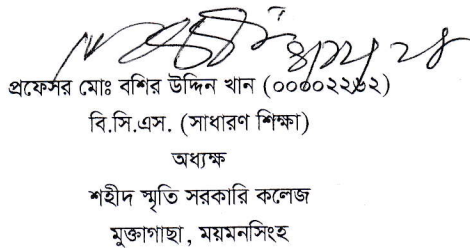 প্রফেসর মোঃ বশির উদ্দিন খান (০০০০২২৬২)
বি.সি.এস. (সাধারণ শিক্ষা)
অধ্যক্ষ
শহীদ স্মৃতি সরকারি কলেজ
মুক্তাগাছা, ময়মনসিংহ